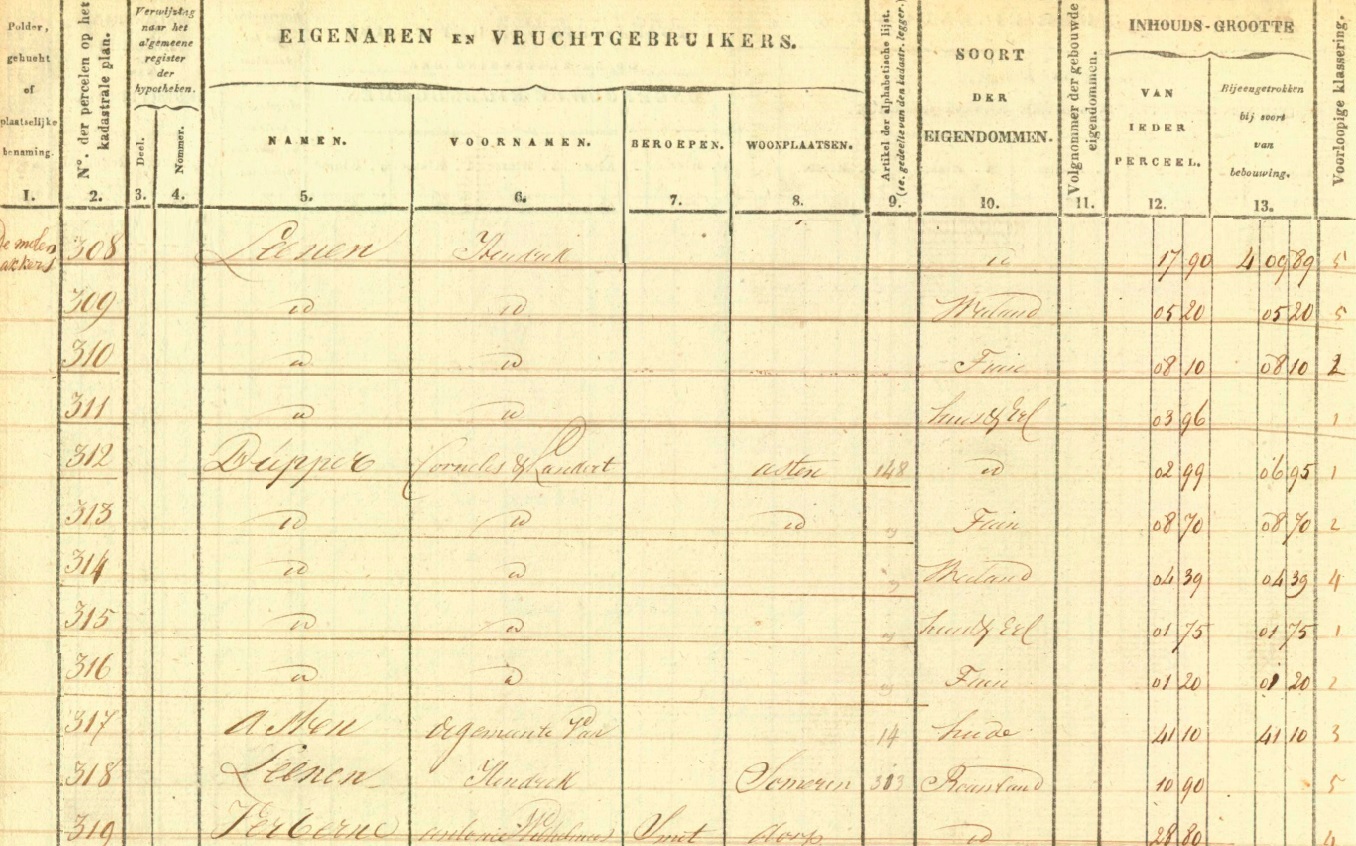 Polder, gehucht of plaatselijke benaming.
N°. der percelen op het kadastrale plan.
Verwijzing naar het algemeene register der hypotheken.
Deel. Nommer.
EIGENAREN EN VRUCHTGEBRUIKERS.
NAMEN. VOORNAMEN. BEROEPEN. WOONPLAATSEN.
Artikel der alphabetische lijst.
SOORT DER EIGENDOMMEN.
Volgnommer der gebouwde eigendommen.
INHOUDS-GROOTTE
VAN IEDER PERCEEL.
Bijeengetrokken bij soort van bebouwing.
Voorloopige klassering.
1. 2. 3. 4. 5. 6. 7. 8. 9. 10. 11. 12. 13.
De molen akkers 308 Leenen Hendrik id 17 90 4 09 89 5
309 id id Weiland 05 20 05 20 5
310 id id Tuin 08 10 08 10 2
311 id id huis & Erf 03 96 1
312 Cornelis & asten 148 id 02 99 06 95 1
313 id id id Tuin 08 70 08 70 2
314 id id Weiland 04 39 04 39 4
315 id id huis & Erf 01 75 01 75 1
316 id id Tuin 01 20 01 20 2
317 Asten de gemeente van 14 heide 41 10 41 10 3
318 Leenen Hendrik Someren 313 Bouwland 10 90 5
319 Verberne antonie Wilhelmus Smit dorp id 28 80 4